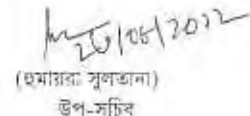 26/05/2022
(হুমায়রা সুলতানা)
উপ-সচিব